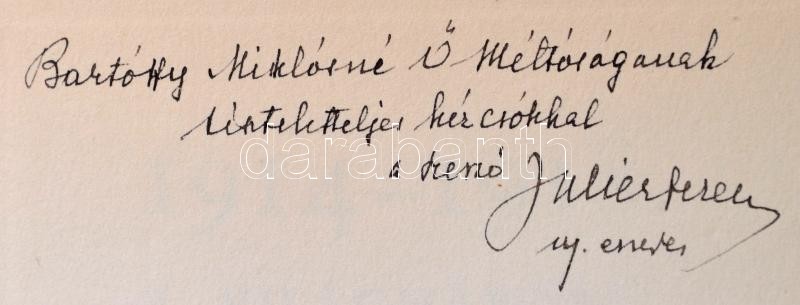 Bartóffy Miklósné Ő Méltóságának
tiszteletteljes kézcsókkal
a szerző Julier Ferenc
ny. ezredes
darabanth